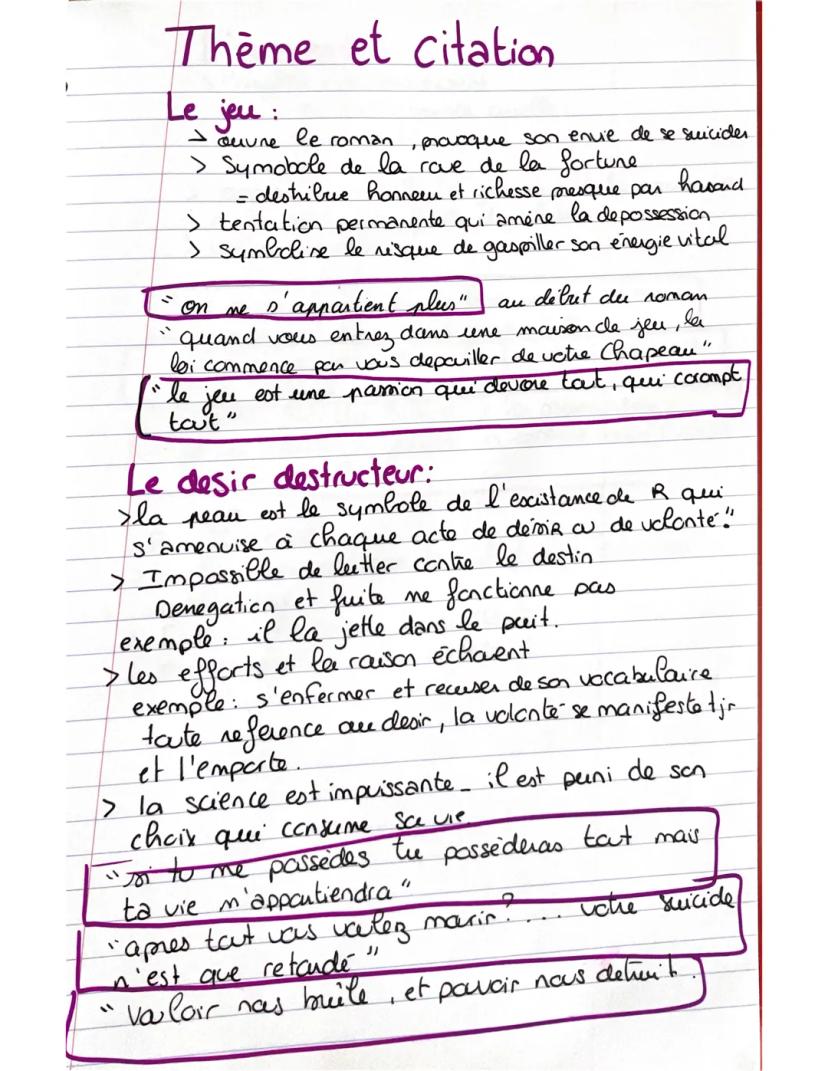 Thème et citation
Le jeu :
→ ouvre le roman, provoque son envie de se suicider
> Symobole de la roue de la fortune
= destribue honneur et richesse presque par hasard
> tentation permanente qui amène la depossession
> symbolise le risque de gaspiller son énergie vital
"on ne s'appartient plus" au début du roman
"quand vous entrez dans une maison de jeu, la
loi commence par vous depouiller de votre Chapeau"
"le jeu est une passion qui devore tout, qui corompt
tout"
Le desir destructeur:
> la peau est le symbole de l'existance de R qui
s'amenuise à chaque acte de désir ou de volonté."
> Impossible de lutter contre le destin
Denegation et fuite ne fonctionne pas
exemple: il la jette dans le puit.
> les efforts et la raison échouent
exemple: s'enfermer et recuser de son vocabulaire
toute reference au desir, la volonté se manifeste tjr
et l'emporte.
> la science est impuissante _ il est puni de son
choix qui consume sa vie
"si tu me possèdes tu possèderas tout mais
ta vie m'appartiendra"
"apres tout vous voulez mourir?.... votre suicide
n'est que retardé"
"Valoir nous brûle, et pouvoir nous detruit.